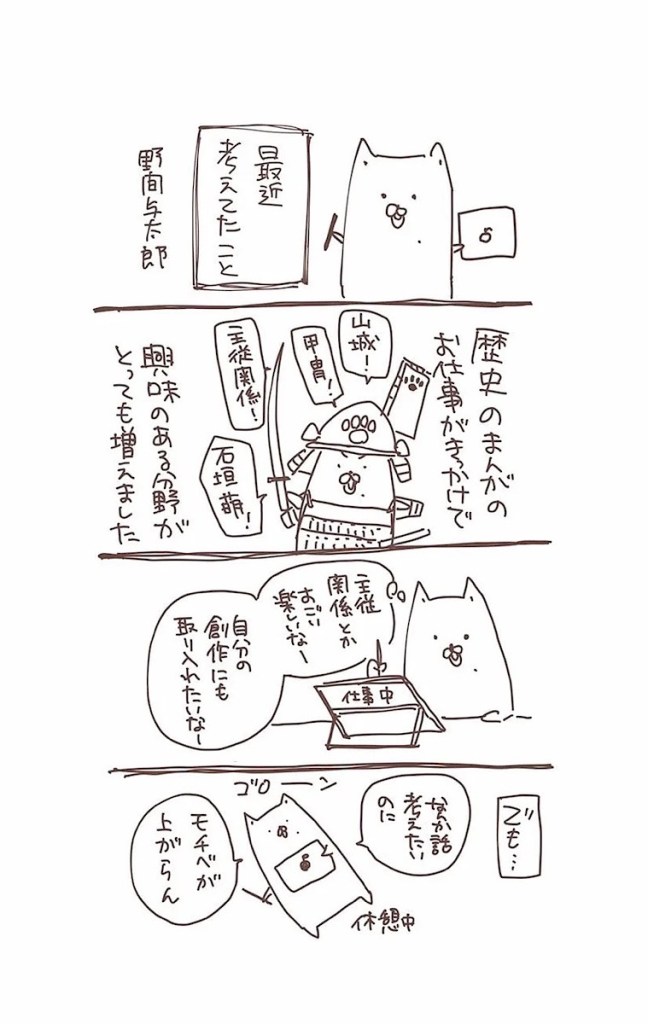 最近
考えてたこと
野間与太郎
歴史のまんがの
お仕事がきっかけで
山城ー!
甲冑!
主従関係!
石垣萌!
興味のある分野が
とっても増えました
主従
関係とか
すごい
楽しいなー
自分の
創作にも
取り入れたいなー
仕事中
でも…
なんか話
考えたい
のに
ゴローン
モチベが
上がらん
休憩中